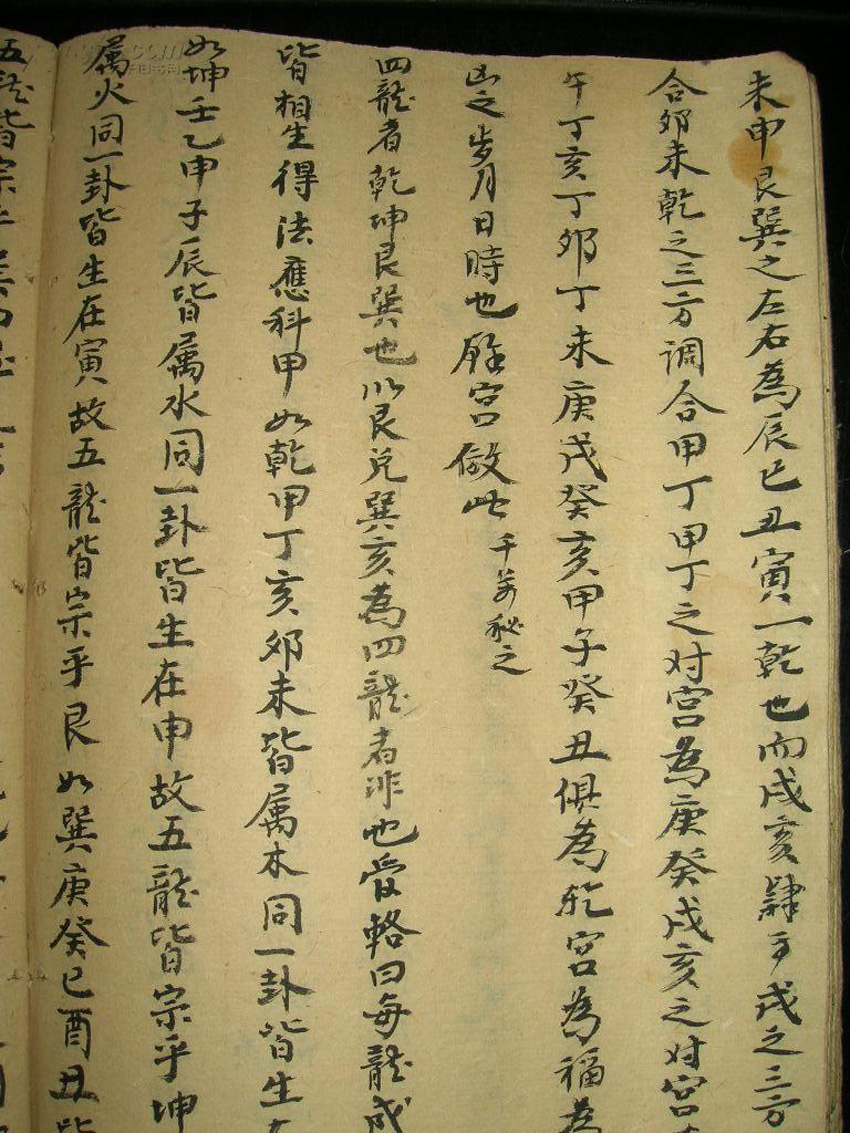 未申艮巽之左右為辰巳丑寅一乾也而戌亥肄于戌之三方
合卯未乾之三方调合甲丁甲丁之对宫為庚癸戌亥之对宫
午丁亥丁卯丁未庚戌癸亥甲子癸丑俱為乾宫為福為
凶之岁月日時也餘宫倣此千萬秘之
四龍者乾坤艮巽也以艮兑巽亥為四龍者非也管輅曰每龍成
皆相生得法應科甲如乾甲丁亥卯未皆属木同一卦皆生在
如坤壬乙申子辰皆属水同一卦皆生在申故五龍皆宗乎坤
属火同一卦皆生在寅故五龍皆宗乎艮如巽庚癸巳酉丑皆
五龍皆宗乎巽